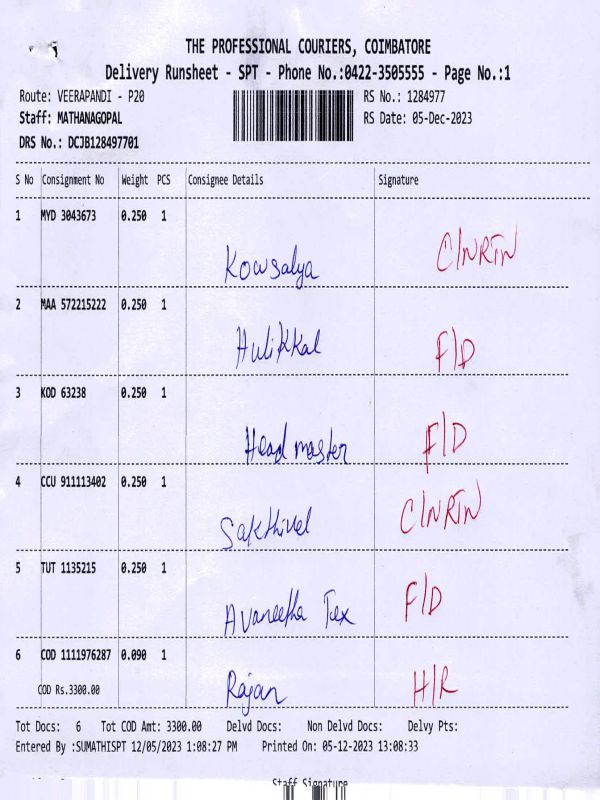 THE PROFESSIONAL COURIERS, COIMBATORE
Delivery Runsheet - SPT - Phone No.:0422-3505555 - Page No.:1
Route: VEERAPANDI - P20 RS No.: 1284977
Staff: MATHANAGOPAL RS Date: 05-Dec-2023
DRS No.: DCJB128497701
S No Consignment No Weight PCS Consignee Details Signature
1 MYD 3043673 0.250 1
Kowsalya C/NRTN
2 MAA 572215222 0.250 1
Hulikkal F/D
3 KOD 63238 0.250 1
Head master F/D
4 CCU 911113402 0.250 1
Sakthivel C/NRTN
5 TUT 1135215 0.250 1
Avaneetha Tex F/D
6 COD 1111976287 0.090 1
COD Rs.3300.00 Rajan H/R
Tot Docs: 6 Tot COD Amt: 3300.00 Delvd Docs: Non Delvd Docs: Delvy Pts:
Entered By :SUMATHISPT 12/05/2023 1:08:27 PM Printed On: 05-12-2023 13:08:33
Staff Signature